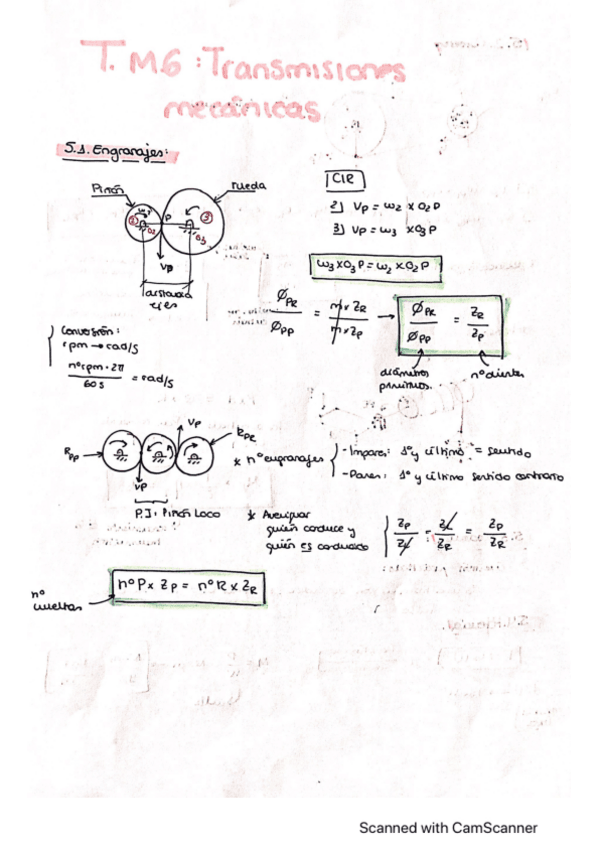 T. M6: Transmisiones
mecánicas
5.1. Engranajes:
Piñón
rueda
CIR
2) Vp = ω2 x O2P
3) Vp = ω3 x O3P
P
2
3
O2
O3
Vp
distancia
ejes
ω3 x O3P = ω2 x O2P
ØPR / ØPP = m x ZR / m x ZP → ØPR / ØPP = ZR / ZP
diámetros
primitivos.
nº dientes
Conversión:
rpm → rad/s
nº rpm · 2π / 60 s = rad/s
Vp
RPR
RPP
Vp
P.I: Piñón Loco
* nº engranajes
- Impares: 1º y último = sentido
- Pares: 1º y último sentido contrario
* Averiguar
quién conduce y
quién es conducido
ZP / ZL · ZL / ZR = ZP / ZR
nº P x ZP = nº R x ZR
nº
vueltas
Scanned with CamScanner